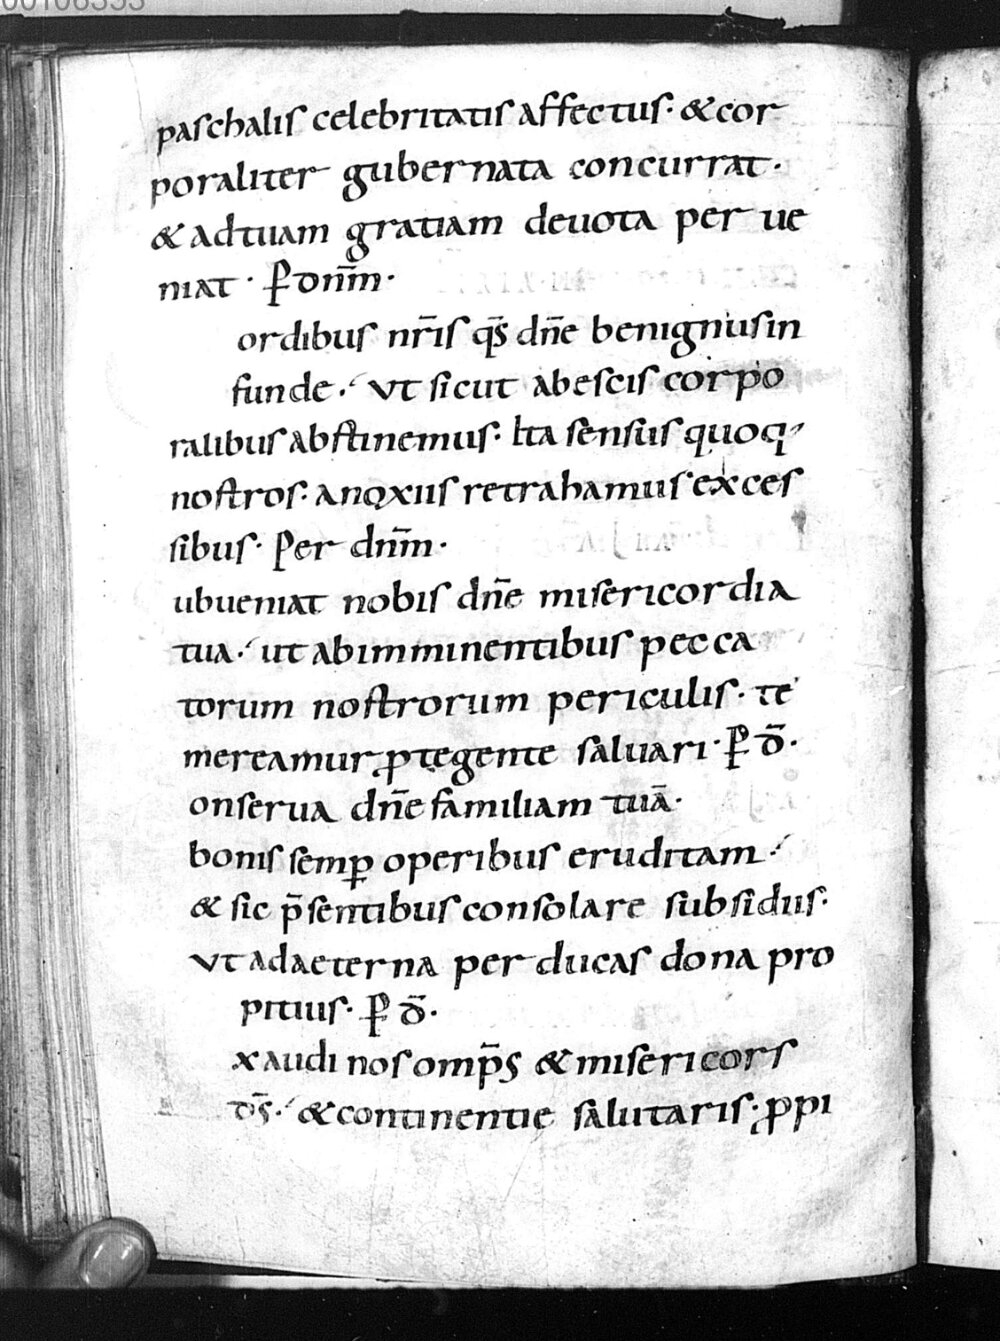 00106353
paschalis celebritatis affectus· & cor
poraliter gubernata concurrat·
& ad tuam gratiam deuota per ue
niat· P̄ dnm̄·
ordibus nr̄is qs̄ dn̄e benignus in
funde·́ ut sicut ab escis corpo
ralibus abstinemus· Ita sensus quoq·
nostros· a noxiis retrahamus exces
sibus· Per dnm̄·
ubueniat nobis dn̄e misericordia
tua·́ ut ab imminentibus pecca
torum nostrorum periculis· te
mereamur ꝓtegente saluari· P̄ d̄·
onserua dn̄e familiam tuā·
bonis semꝑ operibus eruditam·́
& sic p̄sentibus consolare subsidus·
ut ad aeterna perducas dona pro
pitius· P̄ d̄·
xaudi nos omp̄s & misericors
ds̄·́ & continentie salutaris· ꝓpi